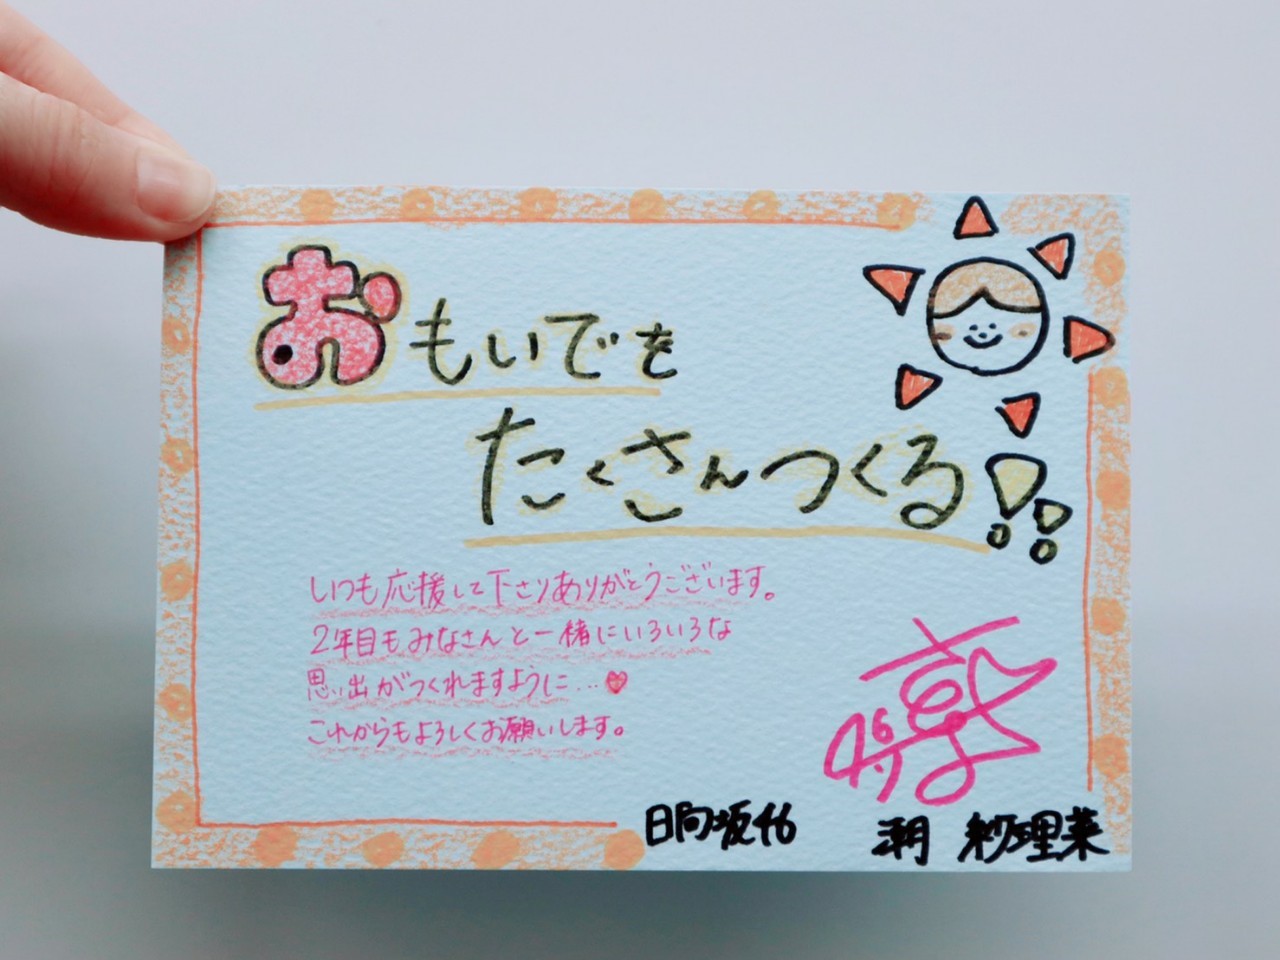 おもいでを
たくさんつくる!!
いつも応援して下さりありがとうございます。
2年目もみなさんと一緒にいろいろな
思い出がつくれますように…♥
これからもよろしくお願いします。
日向坂46
潮 紗理菜